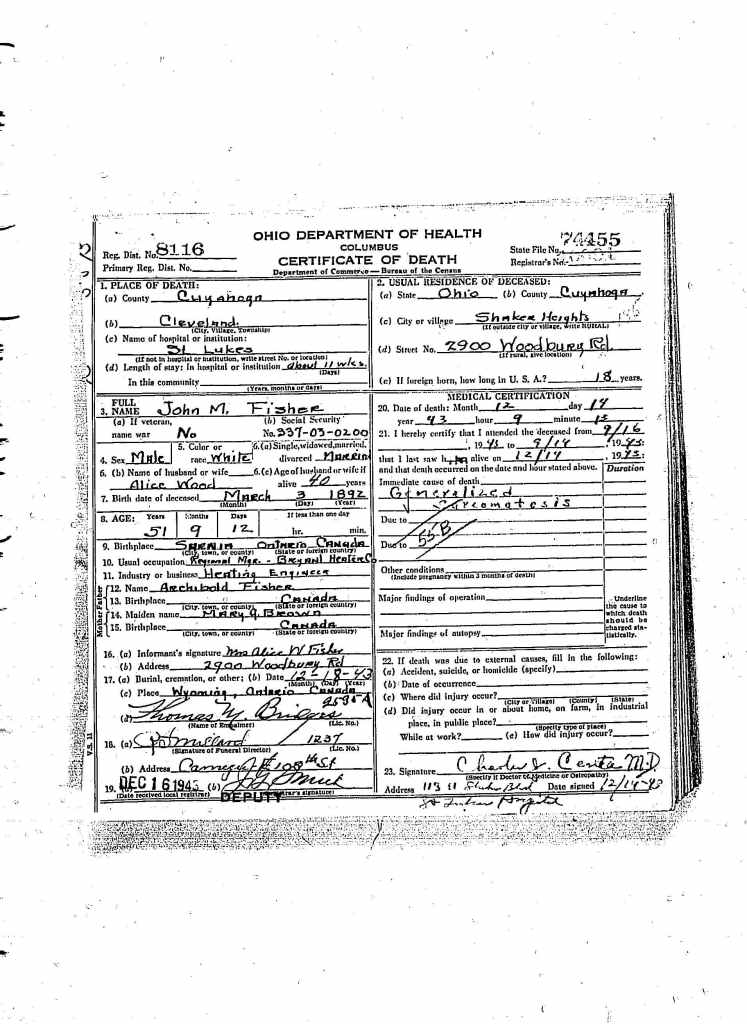 OHIO DEPARTMENT OF HEALTH
COLUMBUS
CERTIFICATE OF DEATH
Department of Commerce — Bureau of the Census
Reg. Dist. No. 8116
Primary Reg. Dist. No.
State File No. 74455
Registrar's No.
1. PLACE OF DEATH:
(a) County Cuyahoga
(b) Cleveland
(City, Village, Township)
(c) Name of hospital or institution:
St Lukes
(If not in hospital or institution, write street No. or location)
(d) Length of stay: In hospital or institution about 11 wks.
(Days)
In this community
(Years, months or days)
2. USUAL RESIDENCE OF DECEASED:
(a) State Ohio (b) County Cuyahoga
(c) City or village Shaker Heights
(If outside city or village, write RURAL)
(d) Street No. 2900 Woodbury Rd
(If rural, give location)
(e) If foreign born, how long in U. S. A.? 18 years.
3. FULL NAME John M. Fisher
(a) If veteran, name war No
(b) Social Security No. 337-03-0200
4. Sex Male
5. Color or race White
6. (a) Single, widowed, married, divorced Married
6. (b) Name of husband or wife Alice Wood
6. (c) Age of husband or wife if alive 40 years
7. Birth date of deceased March 3 1892
(Month) (Day) (Year)
8. AGE: Years Months Days If less than one day
51 9 12 hr. min.
9. Birthplace Sarnia Ontario Canada
(City, town, or county) (State or foreign country)
10. Usual occupation Regional Mgr. - Bryant Heater Co
11. Industry or business Heating Engineer
Father
12. Name Archibold Fisher
13. Birthplace Canada
(City, town, or county) (State or foreign country)
Mother
14. Maiden name Mary J. Brown
15. Birthplace Canada
(City, town, or county) (State or foreign country)
16. (a) Informant's signature Mrs Alice W Fisher
(b) Address 2900 Woodbury Rd
17. (a) Burial, cremation, or other; (b) Date 12-18-43
(Month) (Day) (Year)
(c) Place Wyoming, Ontario Canada
(d) Thomas Bridges 2535-A
(Name of Embalmer) (Lic. No.)
18. (a) Millard 1237
(Signature of Funeral Director) (Lic. No.)
(b) Address Carnegie 108th St
19. DEC 16 1943 (b)
(Date received local registrar) DEPUTY (Registrar's signature)
V.S. 11
MEDICAL CERTIFICATION
20. Date of death: Month 12 day 14
year 43 hour 9 minute 15
21. I hereby certify that I attended the deceased from 9/16
, 1943 to 9/14, 1943;
that I last saw him alive on 12/14, 1943;
and that death occurred on the date and hour stated above.
Duration
Immediate cause of death
Generalized
Sarcomatosis
Due to
Due to 55-B
Other conditions
(Include pregnancy within 3 months of death)
Major findings of operation
Major findings of autopsy
Underline the cause to which death should be charged statistically.
22. If death was due to external causes, fill in the following:
(a) Accident, suicide, or homicide (specify)
(b) Date of occurrence
(c) Where did injury occur?
(City or Village) (County) (State)
(d) Did injury occur in or about home, on farm, in industrial
place, in public place?
(Specify type of place)
While at work? (e) How did injury occur?
23. Signature Charles J. M.D
(Specify if Doctor of Medicine or Osteopathy)
Address 11311 Shaker Blvd Date signed 12/14-43
St Lukes Hospital